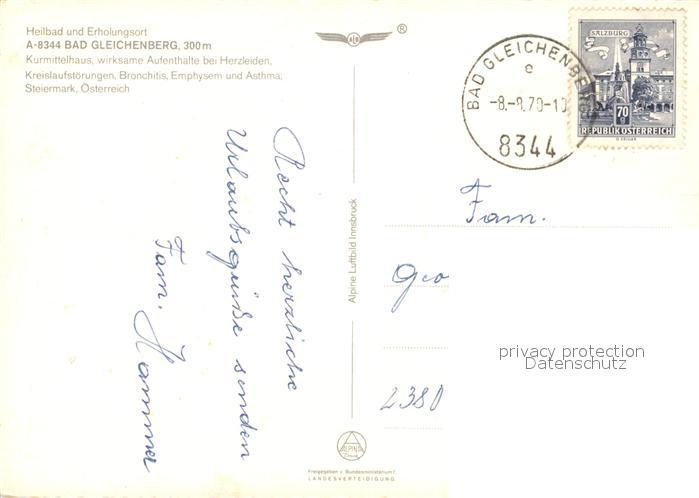 Heilbad und Erholungsort
A-8344 BAD GLEICHENBERG, 300 m
Kurmittelhaus, wirksame Aufenthalte bei Herzleiden,
Kreislaufstörungen, Bronchitis, Emphysem und Asthma,
Steiermark, Österreich
Recht herzliche
Urlaubsgrüße senden
Fam. Hammer
Alpine Luftbild Innsbruck
ALPINE
Freigegeben v. Bundesministerium f.
LANDESVERTEIDIGUNG
®
BAD GLEICHENBERG
e
-8.-9.70-10
8344
SALZBURG
70
g
REPUBLIK ÖSTERREICH
Fam.
Geo
2380
privacy protection
Datenschutz